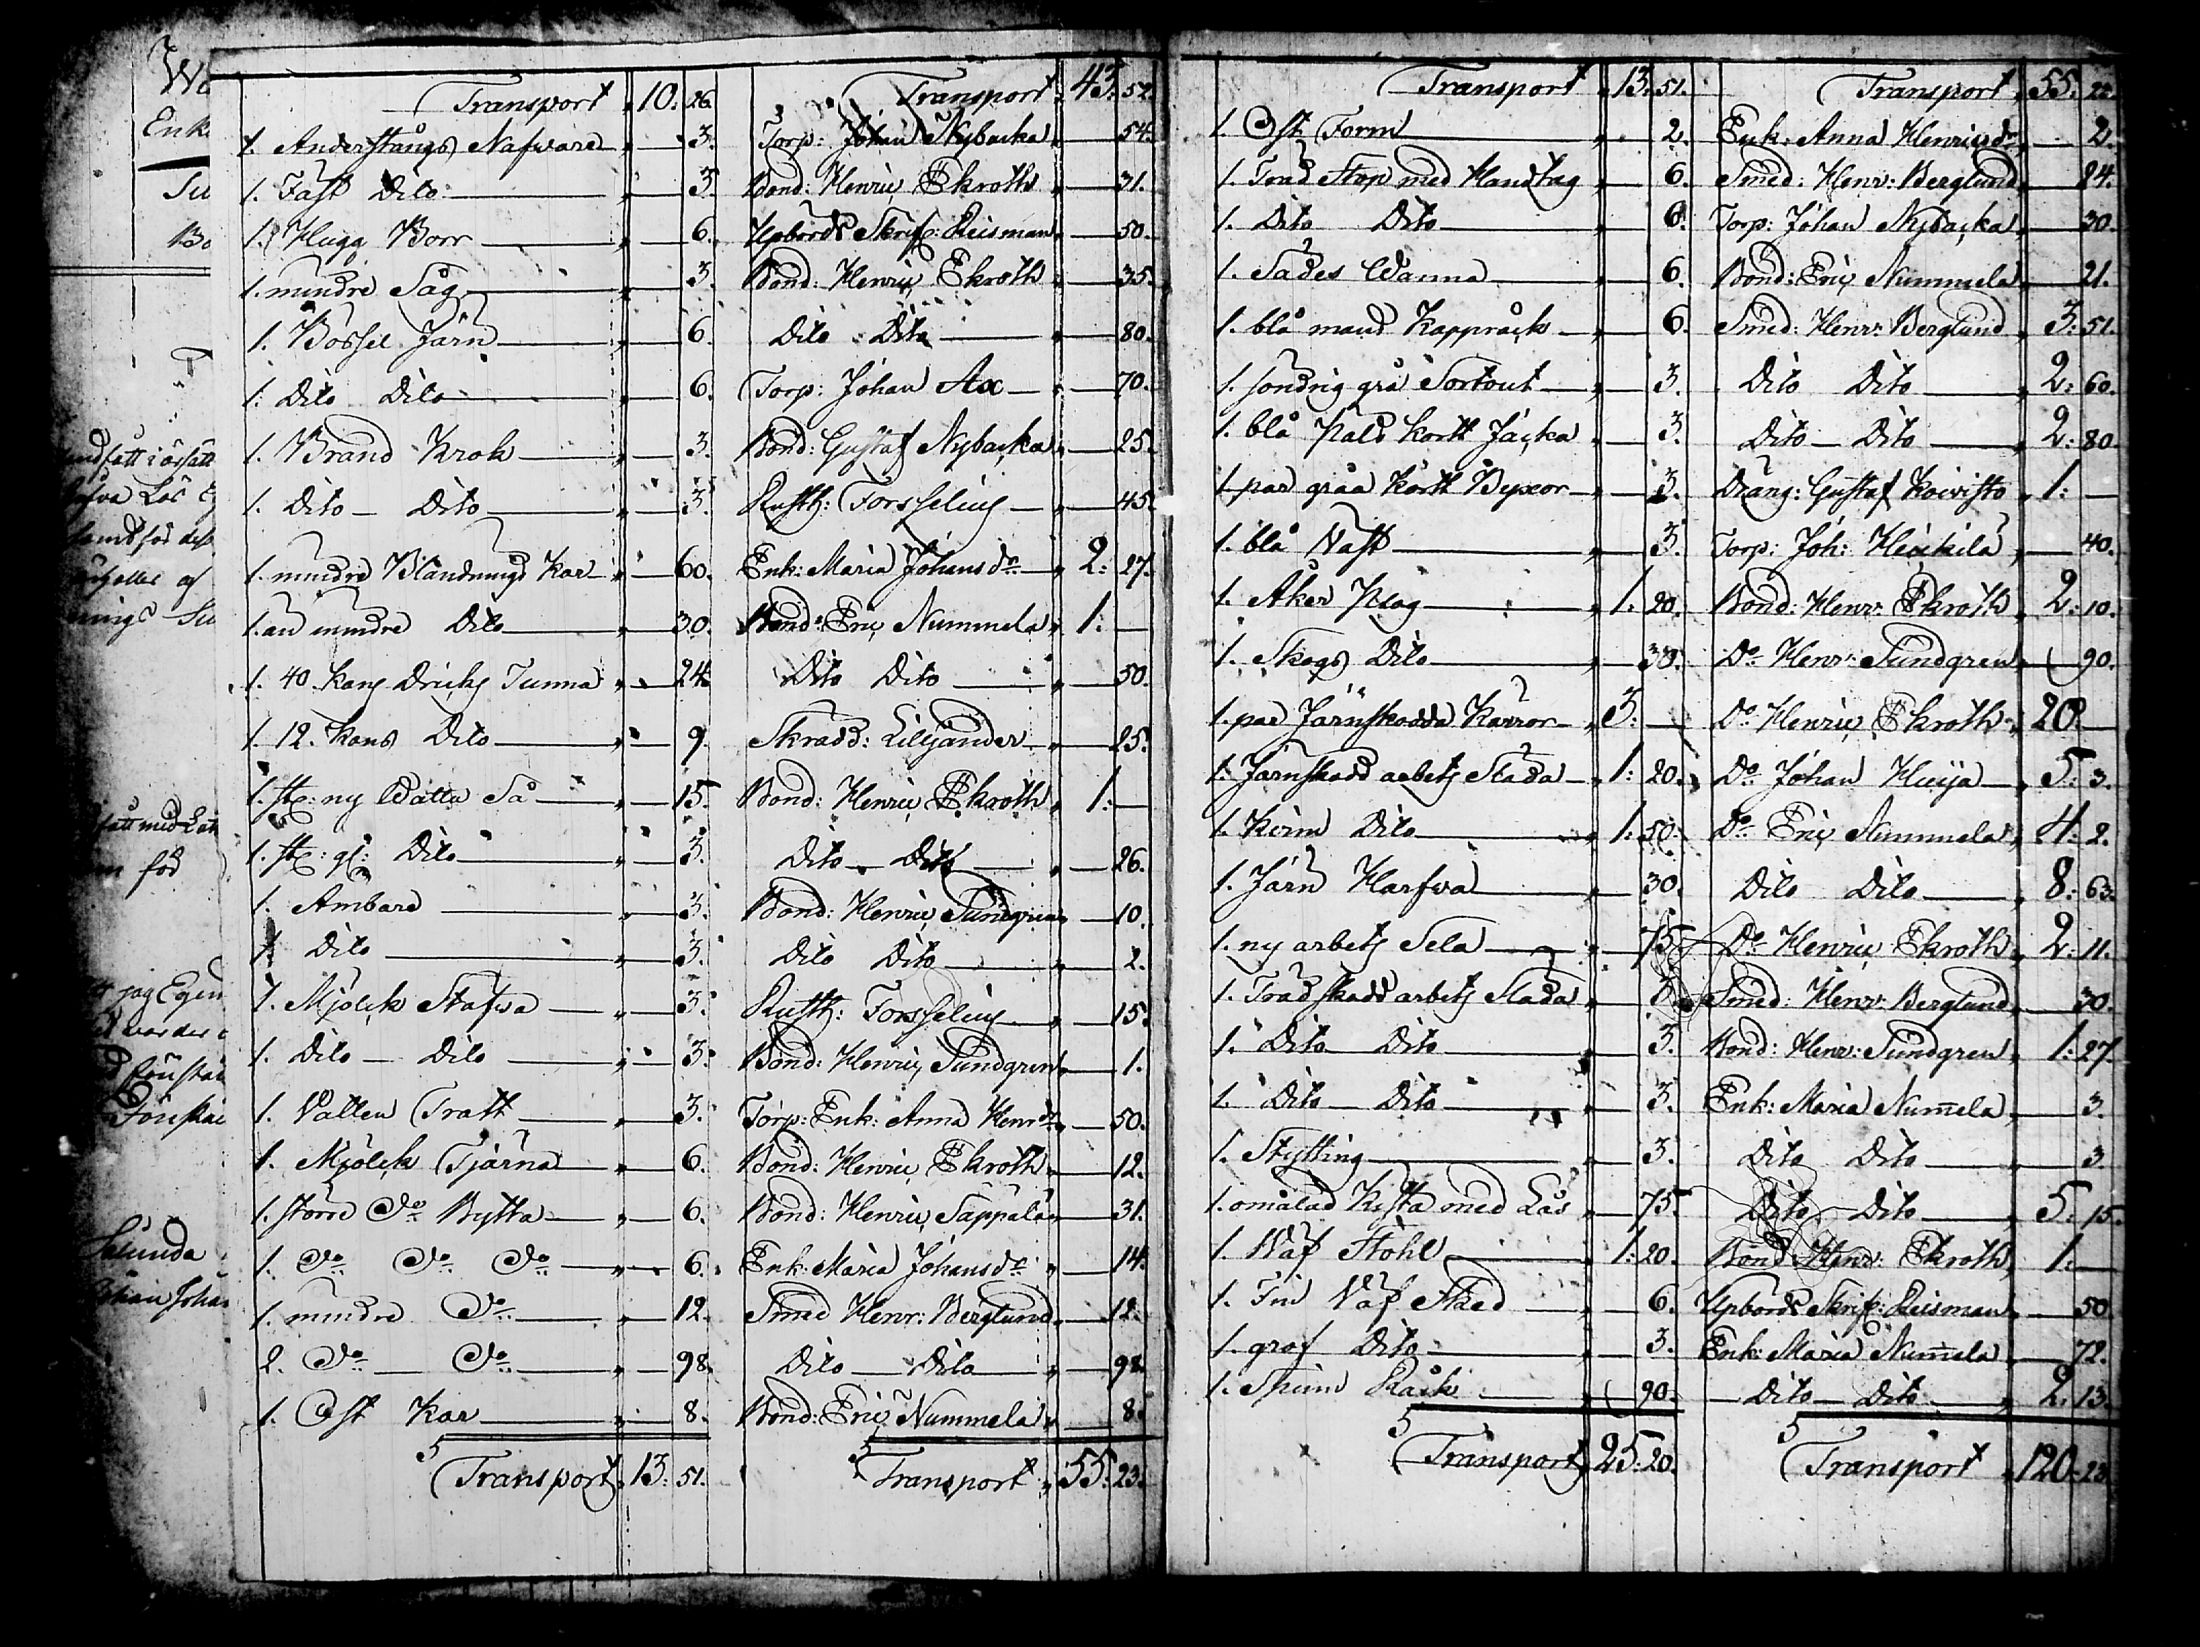 Transport 10: 26. Transport 43: 52.
1. Anderstångs Nafware 3. Torp: Johan Nybacka 54.
1. Fast Dito 3. Bond: Henric Ekroth 31.
1. Hugg Borr 6. Upbörds Skrif: Reisman 50.
1. mindre Såg 3. Bond: Henric Ekroth 35.
1. Bössel Järn 6. Dito Dito 80.
1. Dito Dito 6. Torp: Johan Ax 70.
1. Brand Krok 3. Bond: Gustaf Nybacka 25.
1. Dito Dito 3. Rusth: Forsselius 45.
1. mindre Blandnings Kar 60. Enk: Maria Johansdr 2: 27.
1. än mindre Dito 30. Bond: Eric Nummela 1: —
1. 40 Kans Dricks Tunna 24. Dito Dito 50.
1. 12. Kans Dito 9. Skradd: Liljander 25.
1. st: ny Watta Så 15. Bond: Henric Ekroth 1: —
1. st: gl: Dito 3. Dito Dito 26.
1. Ämbare 3. Bond: Henric Sundgren 10.
1. Dito 3. Dito Dito 2.
1. Mjölck Stäfwa 3. Rusth: Forsselius 15.
1. Dito Dito 3. Bond: Henric Sundgren 1.
1. Vatten Tratt 3. Torp: Enk: Anna Henrdr 50.
1. Mjölck Tjärna 6. Bond: Henric Ekroth 12.
1. större Do Bytta 6. Bond: Henric Sappala 31.
1. Do Do Do 6. Enk: Maria Johansdr 14.
1. mindre Do 12. Smed Henr: Berglund 12.
2. Do Do 98. Dito Dito 98.
1. Ost Kar 8. Bond: Eric Nummela 8.
Transport 13: 51. Transport 55: 23.
Transport 13: 51. Transport 55: 23.
1. Ost Form 2. Enk: Anna Henricsdr 2.
1. Träd Stop med Handtag 6. Smed: Henr: Berglund 24.
1. Dito Dito 6. Torp: Johan Nybacka 30.
1. Sädes Wanna 6. Bond: Eric Nummela 21.
1. blå mans Kappråck 6. Smed: Henr: Berglund 3: 51.
1. söndrig grå Sortout 3. Dito Dito 2: 60.
1. blå Päls Kortt Jacka 3. Dito Dito 2: 80.
1. par gråa Kortt Byxor 3. Dräng: Gustaf Koivisto 1: —
1. blå Väst 3. Torp: Joh: Heickilä 40.
1. Åker Plog 1: 20. Bond: Henr: Ekroth 2: 10.
1. Skogs Dito 30. Do Henr: Sundgren 90.
1. par Järnskodda Kärror 3: — Do Henric Ekroth 20: —
1. Järnskodd arbets Släda 1: 20. Do Johan Huija 5: 3.
1. Kirim Dito 1: 50. Do Eric Nummela 4: 2.
1. Järn Harfwa 30. Dito Dito 8: 63.
1. ny arbets Sela 75. Do Henric Ekroth 2: 11.
1. Träd skodd arbets Släda Smed: Henr: Berglund 30.
1. Dito Dito 3. Bond: Henr: Sundgren 1: 27.
1. Dito Dito 3. Enk: Maria Numela 3.
1. Stytting 3. Dito Dito 3.
1. omålad Kista med Lås 75. Dito Dito 5: 15.
1. Wäf Stohl 1: 20. Bond Henr: Ekroth 1: —
1. Fin Väf Sked 6. Upbörds Skrif: Reisman 50.
1. grof Dito 3. Enk: Maria Numela 72.
1. Spinn Råck 90. Dito Dito 2: 13.
Transport 25: 20. Transport 120: 23.